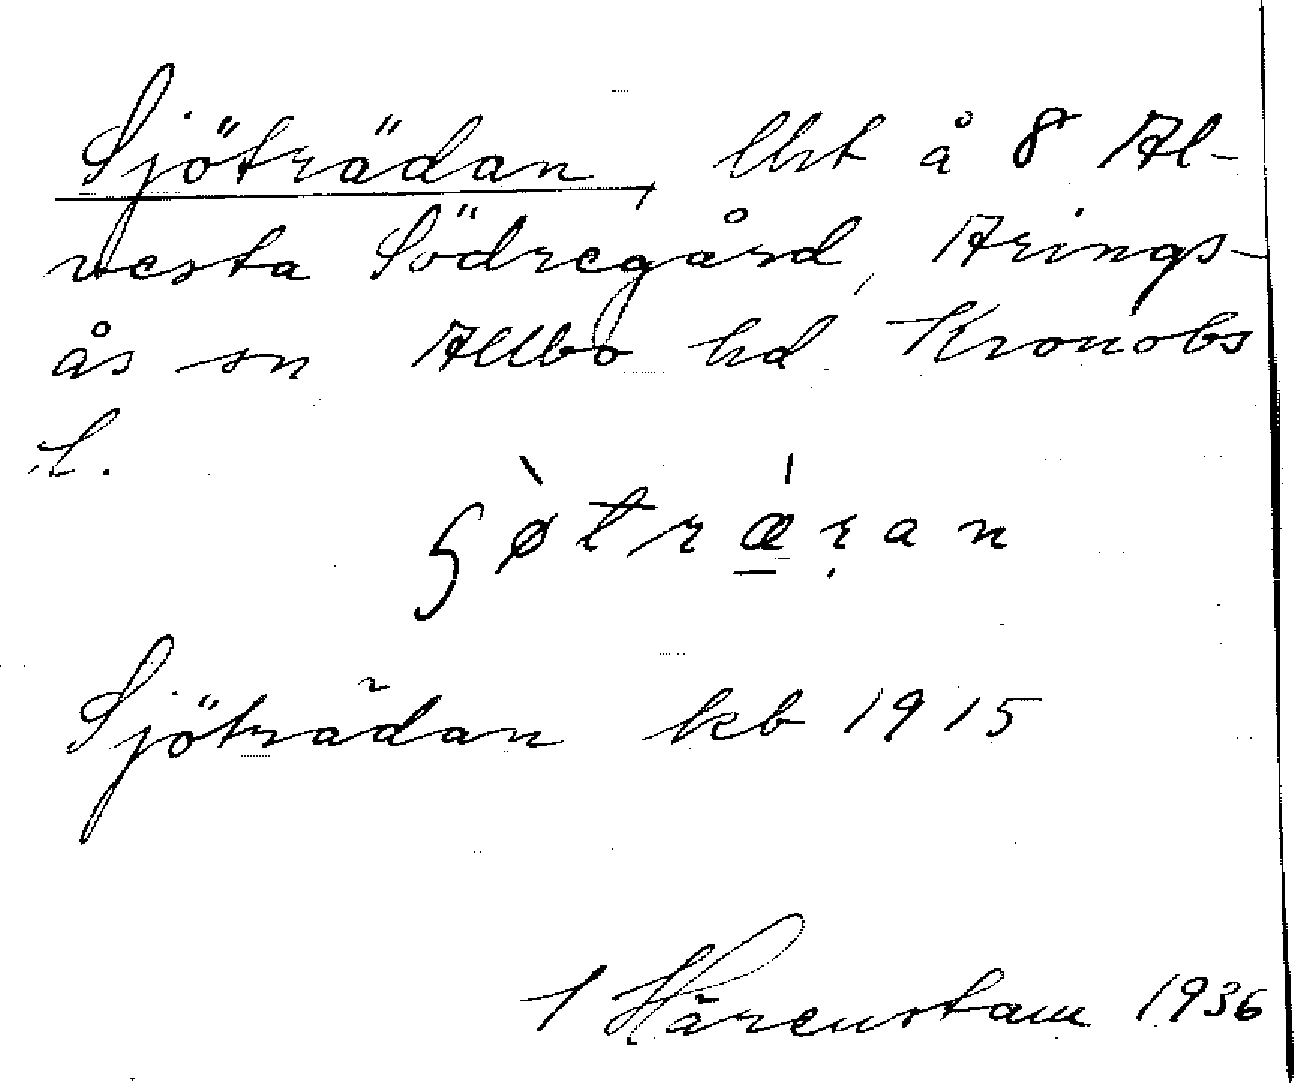 Sjöträdan, lht å 8 Al-
vesta Södregård, Arings-
ås sn Allbo hd Kronobs
l.
ʂø̀trǽ̲ṛan
Sjöträdan kb 1915
1 Härenstam 1936